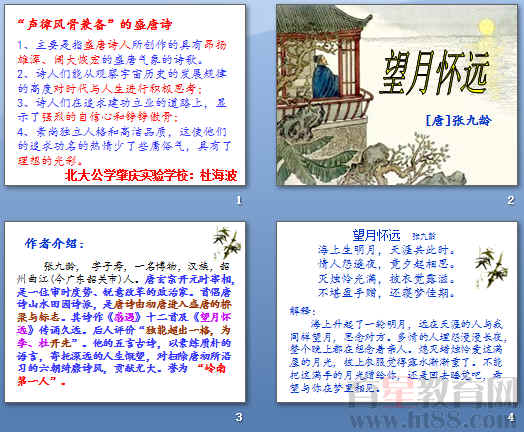 “声律风骨兼备”的盛唐诗
1、主要是指盛唐诗人所创作的具有昂扬
雄浑、阔大恢宏的盛唐气象的诗歌。
2、诗人们能从观察宇宙历史的发展规律
的高度对时代与人生进行积极思考；
3、诗人们在追求建功立业的道路上，显
示了强烈的自信心和铮铮傲骨；
4、崇尚独立人格和高洁品质，这使他们
的追求功名的热情少了些庸俗气，具有了
理想的光彩。
北大公学肇庆实验学校：杜海波
1
望月怀远
[唐]张九龄
2
作者介绍：
张九龄，字子寿，一名博物，汉族，韶
州曲江(今广东韶关市)人。唐玄宗开元时宰相，
是一位审时度势、锐意改革的政治家。首倡唐
诗山水田园诗派，是唐诗由初唐进入盛唐的桥
梁与标志。其诗作《感遇》十二首及《望月怀
远》传诵久远。后人评价“独能超出一格，为
李、杜开先”。他的五言古诗，以素练质朴的
语言，寄托深远的人生慨望，对扫除唐初所沿
习的六朝绮靡诗风，贡献尤大。誉为 “岭南
第一人”。
3
望月怀远 张九龄
海上生明月，天涯共此时。
情人怨遥夜，竟夕起相思。
灭烛怜光满，披衣觉露滋。
不堪盈手赠，还寝梦佳期。
解释：
海上升起了一轮明月，远在天涯的人与我
同样望月，思念对方。多情的人埋怨漫漫长夜，
整个晚上都在想念着亲人。熄灭蜡烛怜爱这满
屋的月光，披上衣服觉得露水渐渐重了。不能
把这满手的月光赠给你，还是回去睡觉吧，希
望与你在梦里相见。
4
www.ht88.com